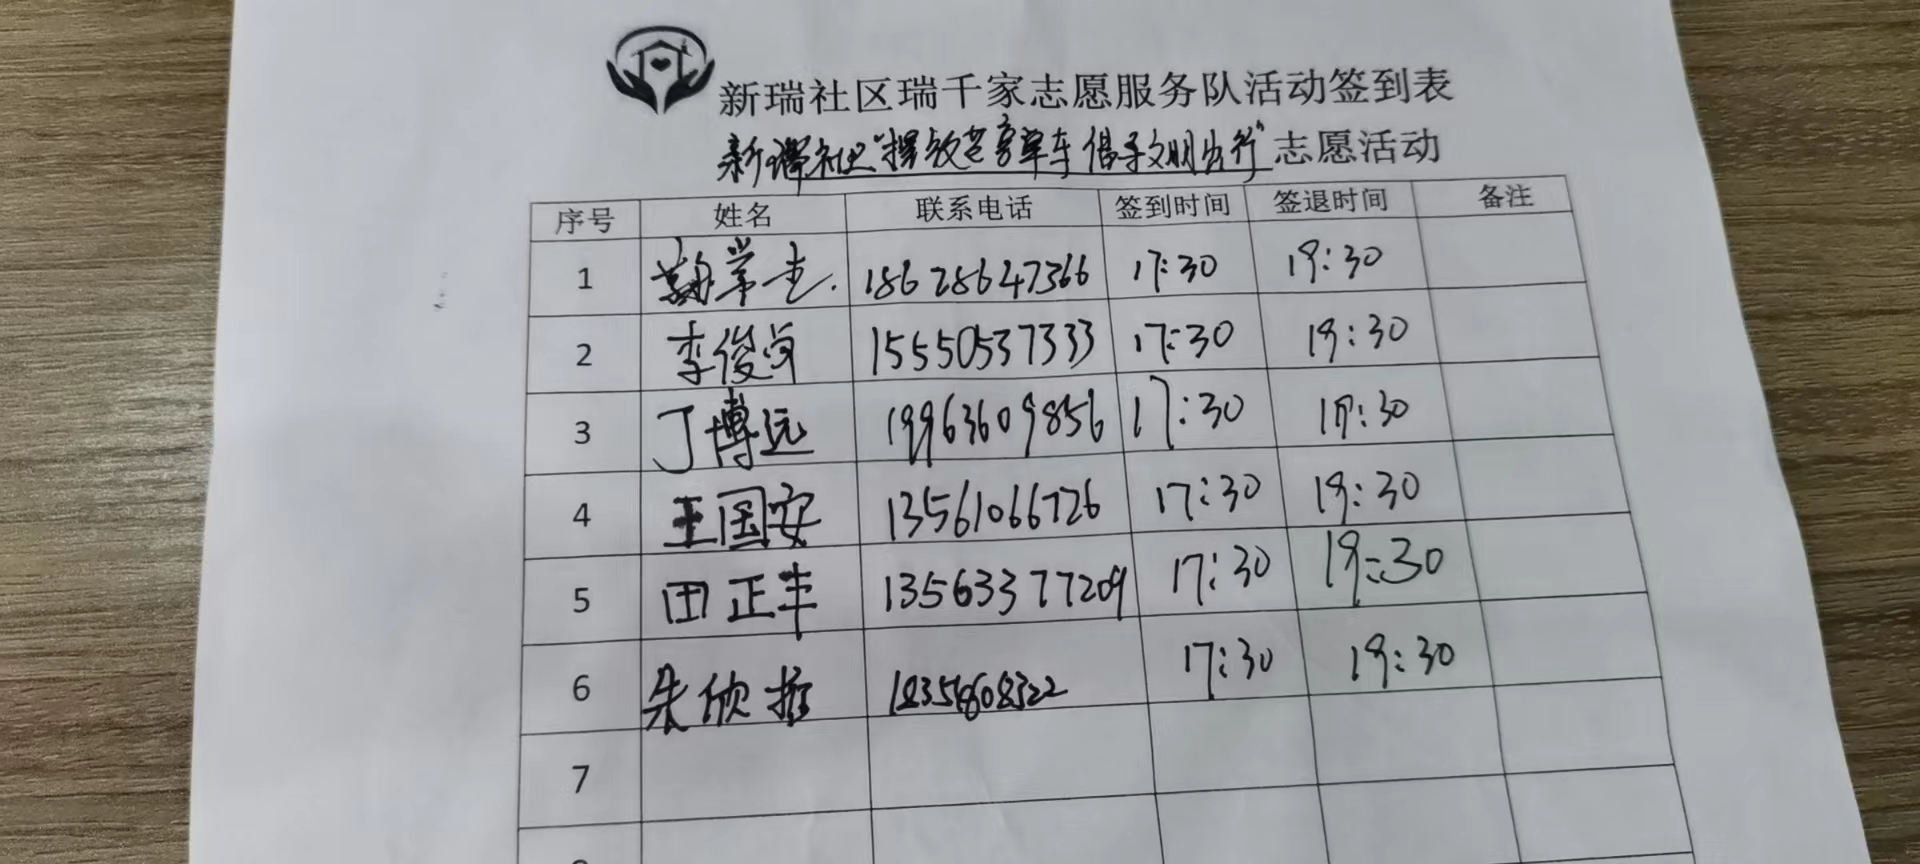 新瑞社区瑞千家志愿服务队活动签到表
新瑞社区"摆放共享单车 倡导文明出行"志愿活动
序号 姓名 联系电话 签到时间 签退时间 备注
1 18628647366 17:30 19:30
2 李俊 15550537333 17:30 19:30
3 丁博远 19963609856 17:30 19:30
4 王国安 13561066726 17:30 19:30
5 田正丰 13563377209 17:30 19:30
6 朱欣 17:30 19:30
7